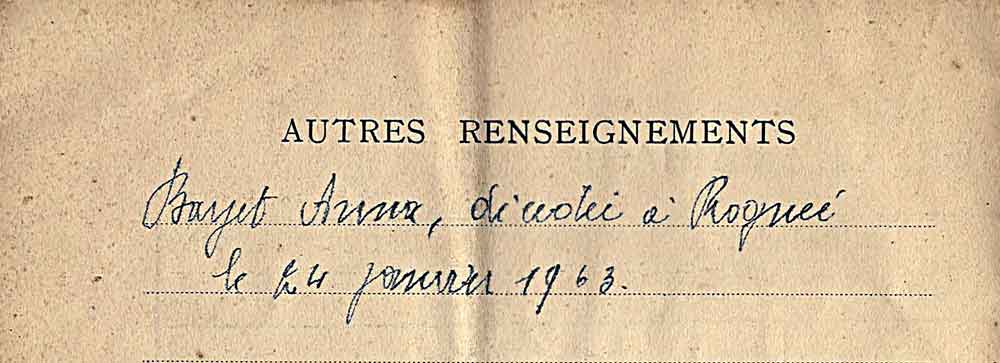 AUTRES RENSEIGNEMENTS
Bayet Anna, décédée à Rognée
le 24 janvier 1963.